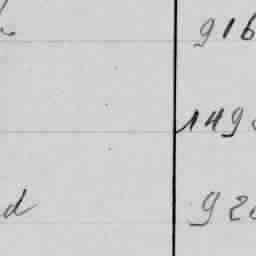 916
149
d 92